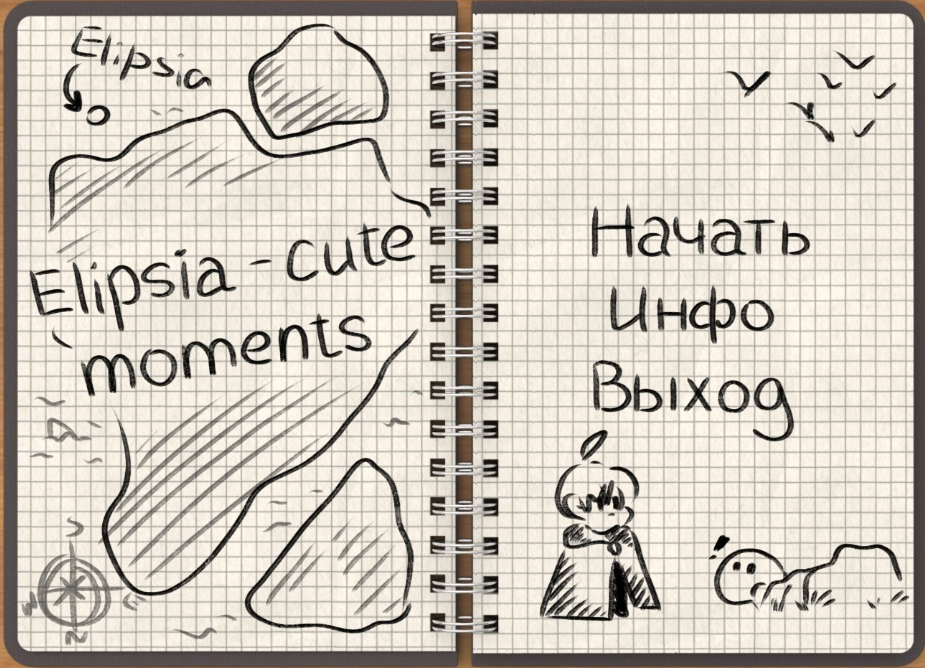 Elipsia
Elipsia - cute
moments
Начать
Инфо
Выход